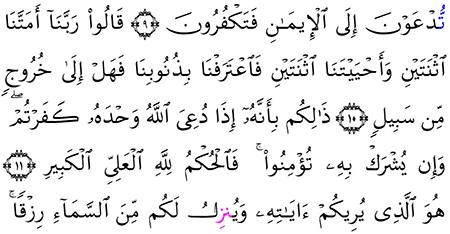 تُدْعَوْنَ إِلَى ٱلْإِيمَـٰنِ فَتَكْفُرُونَ ۝٩ قَالُوا۟ رَبَّنَآ أَمَتَّنَا
ٱثْنَتَيْنِ وَأَحْيَيْتَنَا ٱثْنَتَيْنِ فَٱعْتَرَفْنَا بِذُنُوبِنَا فَهَلْ إِلَىٰ خُرُوجٍ
مِّن سَبِيلٍ ۝١٠ ذَٰلِكُم بِأَنَّهُۥٓ إِذَا دُعِىَ ٱللَّهُ وَحْدَهُۥ كَفَرْتُمْ ۖ
وَإِن يُشْرَكْ بِهِۦ تُؤْمِنُوا۟ ۚ فَٱلْحُكْمُ لِلَّهِ ٱلْعَلِىِّ ٱلْكَبِيرِ ۝١١
هُوَ ٱلَّذِى يُرِيكُمْ ءَايَـٰتِهِۦ وَيُنزِلُ لَكُم مِّنَ ٱلسَّمَآءِ رِزْقًا ۚ